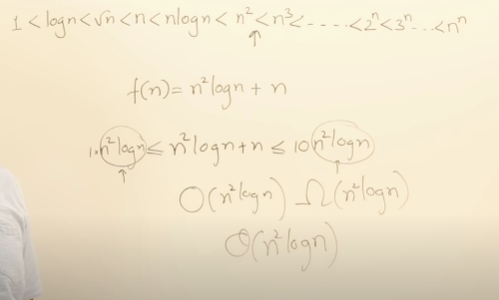 1 < logn < √n < n < nlogn < n² < n³ < ---- < 2ⁿ < 3ⁿ... < nⁿ
f(n) = n²logn + n
1·n²logn ≤ n²logn+n ≤ 10 n²logn
O(n²logn) Ω(n²logn)
Θ(n²logn)